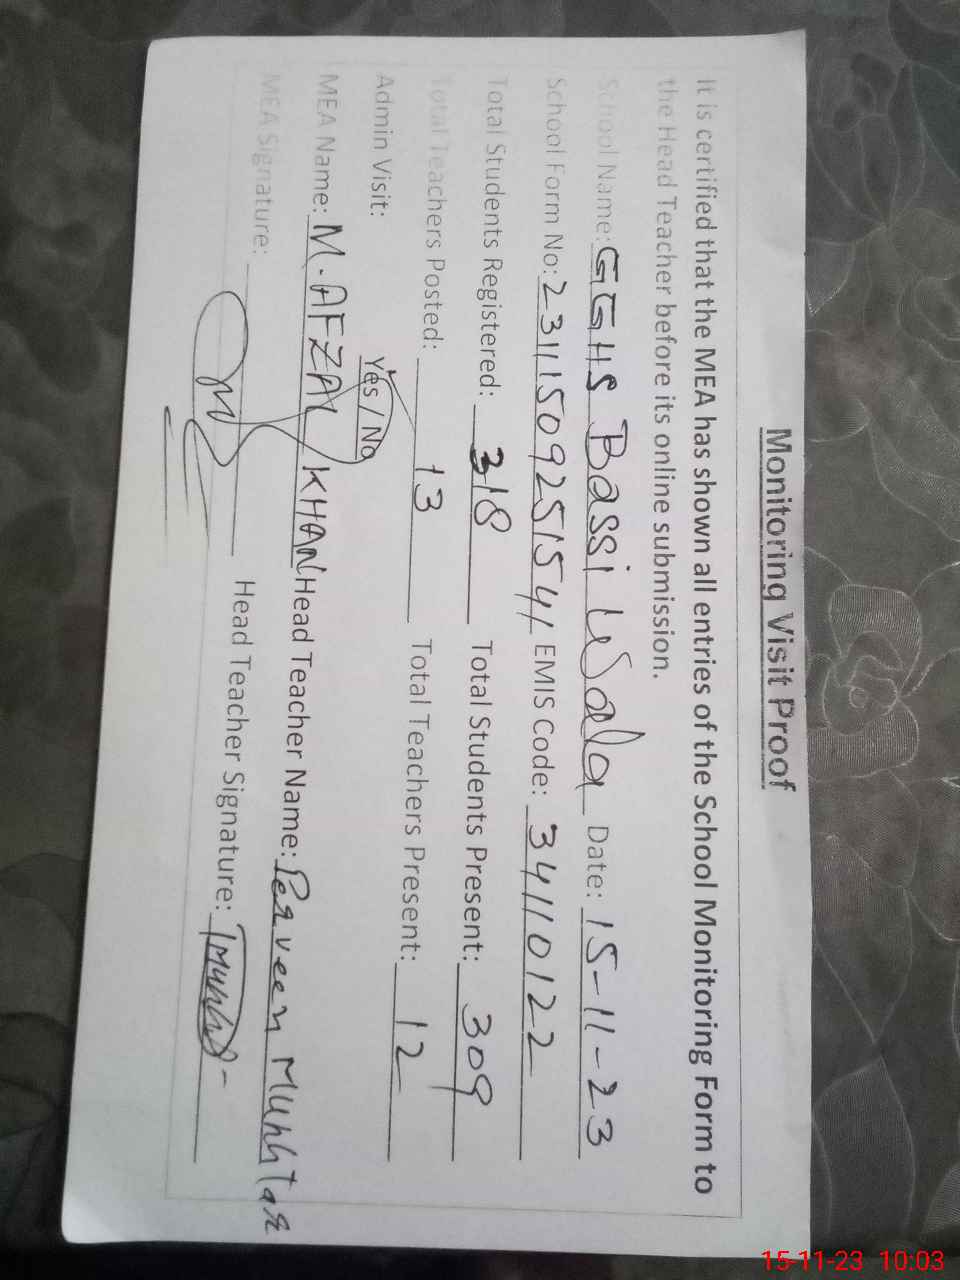 Monitoring Visit Proof
It is certified that the MEA has shown all entries of the School Monitoring Form to
the Head Teacher before its online submission.
School Name: GGHS Bassi Wala Date: 15-11-23
School Form No: 23111509251541 EMIS Code: 34110122
Total Students Registered: 318 Total Students Present: 309
Total Teachers Posted: 13 Total Teachers Present: 12
Admin Visit: Yes / No
MEA Name: M. AFZAL KHAN Head Teacher Name: Perveen Mukhtar
MEA Signature: Head Teacher Signature:
15-11-23 10:03